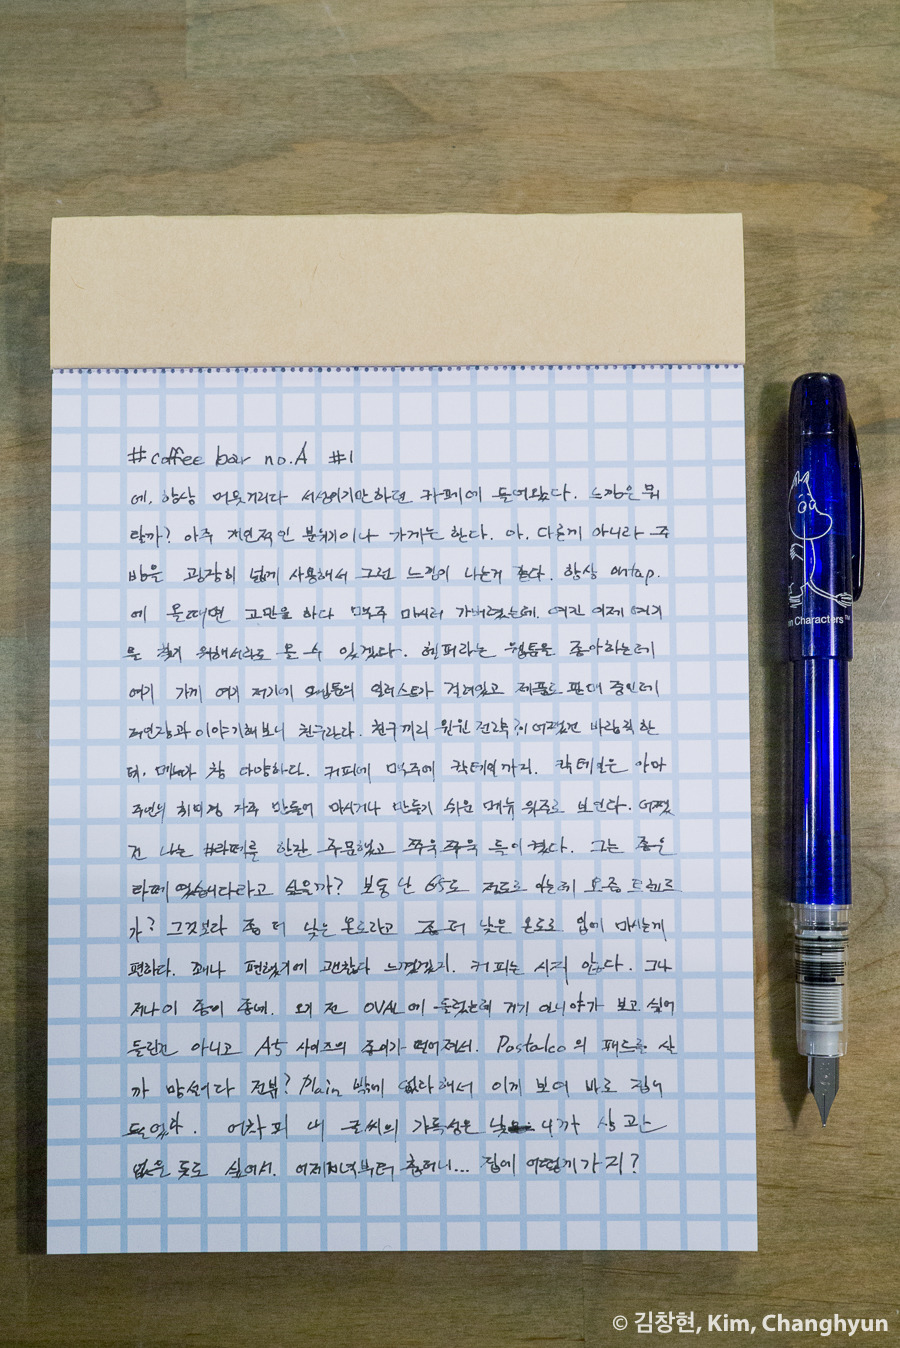 #coffee bar no.A #1
네. 항상 머뭇거리다 서성이기만하던 카페에 들어왔다. 느낌은 뭐
랄까? 아주 개인적인 분위기이나 가게는 한다. 아. 다른게 아니라 주
방을 굉장히 넓게 사용해서 그런 느낌이 나는거 같다. 항상 ontap.
에 올때면 고민을 하다 맥주 마시러 가버렸는데. 여긴 이제 여기
를 찾기 위해서라도 올 수 있겠다. 라는 웹툰을 좋아하는데
여기 가게 여기 저기에 웹툰의 일러스트가 걸려있고 제품도 판매 중인데
이야기해보니 친구란다. 친구끼리 윈윈 전략? 이 어쨌건 바람직한
데. 메뉴가 참 다양하다. 커피에 맥주에 칵테일까지. 칵테일은 아마
주인의 취미겸 자주 만들어 마시거나 만들기 쉬운 메뉴 위주로 보인다. 어쨌
건 나는 #라떼를 한잔 주문했고 쭈욱 쭈욱 들이켰다. 그는 좋은
라떼였습니다라고 싶을까? 보통 난 65도 정도로 아는데 요즘 트렌드
가? 그것보다 좀 더 낮은 온도라고 좀 더 낮은 온도로 입에 마시는게
편하다. 꽤나 편했기에 괜찮다 느꼈겠지. 커피는 시지 않다. 그나
저나 이 종이 좋네. 오기 전 OVAL에 들렀는데 거기 언니야가 보고 싶어
들른건 아니고 A5 사이즈의 종이가 떨어져서. Postalco의 패드를 살
까 망설이다 전부? Plain 밖에 없다해서 이게 보여 바로 집어
들었다. 어차피 내 글씨의 가독성은 낮으니까 상관
없을 듯도 싶어서. 어제저녁부터 춥더니... 집에 어떻게 가지?
Characters
© 김창현, Kim, Changhyun